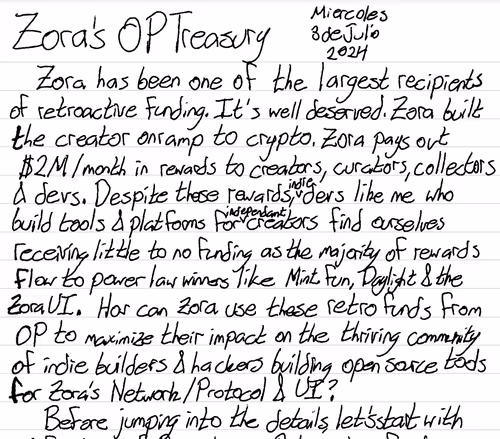 Zora's OP Treasury
Miercoles
3 de Julio
2024
Zora has been one of the largest recipients
of retroactive funding. It's well deserved. Zora built
the creator onramp to crypto. Zora pays out
$2M/month in rewards to creators, curators, collectors
& devs. Despite these rewards, indie devs like me who
build tools & platforms for independant creators find ourselves
receiving little to no funding as the majority of rewards
flow to power law winners like Mint.fun, Daylight & the
Zora UI. How can Zora use these retro funds from
OP to maximize their impact on the thriving community
of indie builders & hackers building open source tools
for Zora's Network/Protocol & UI?
Before jumping into the details, let's start with